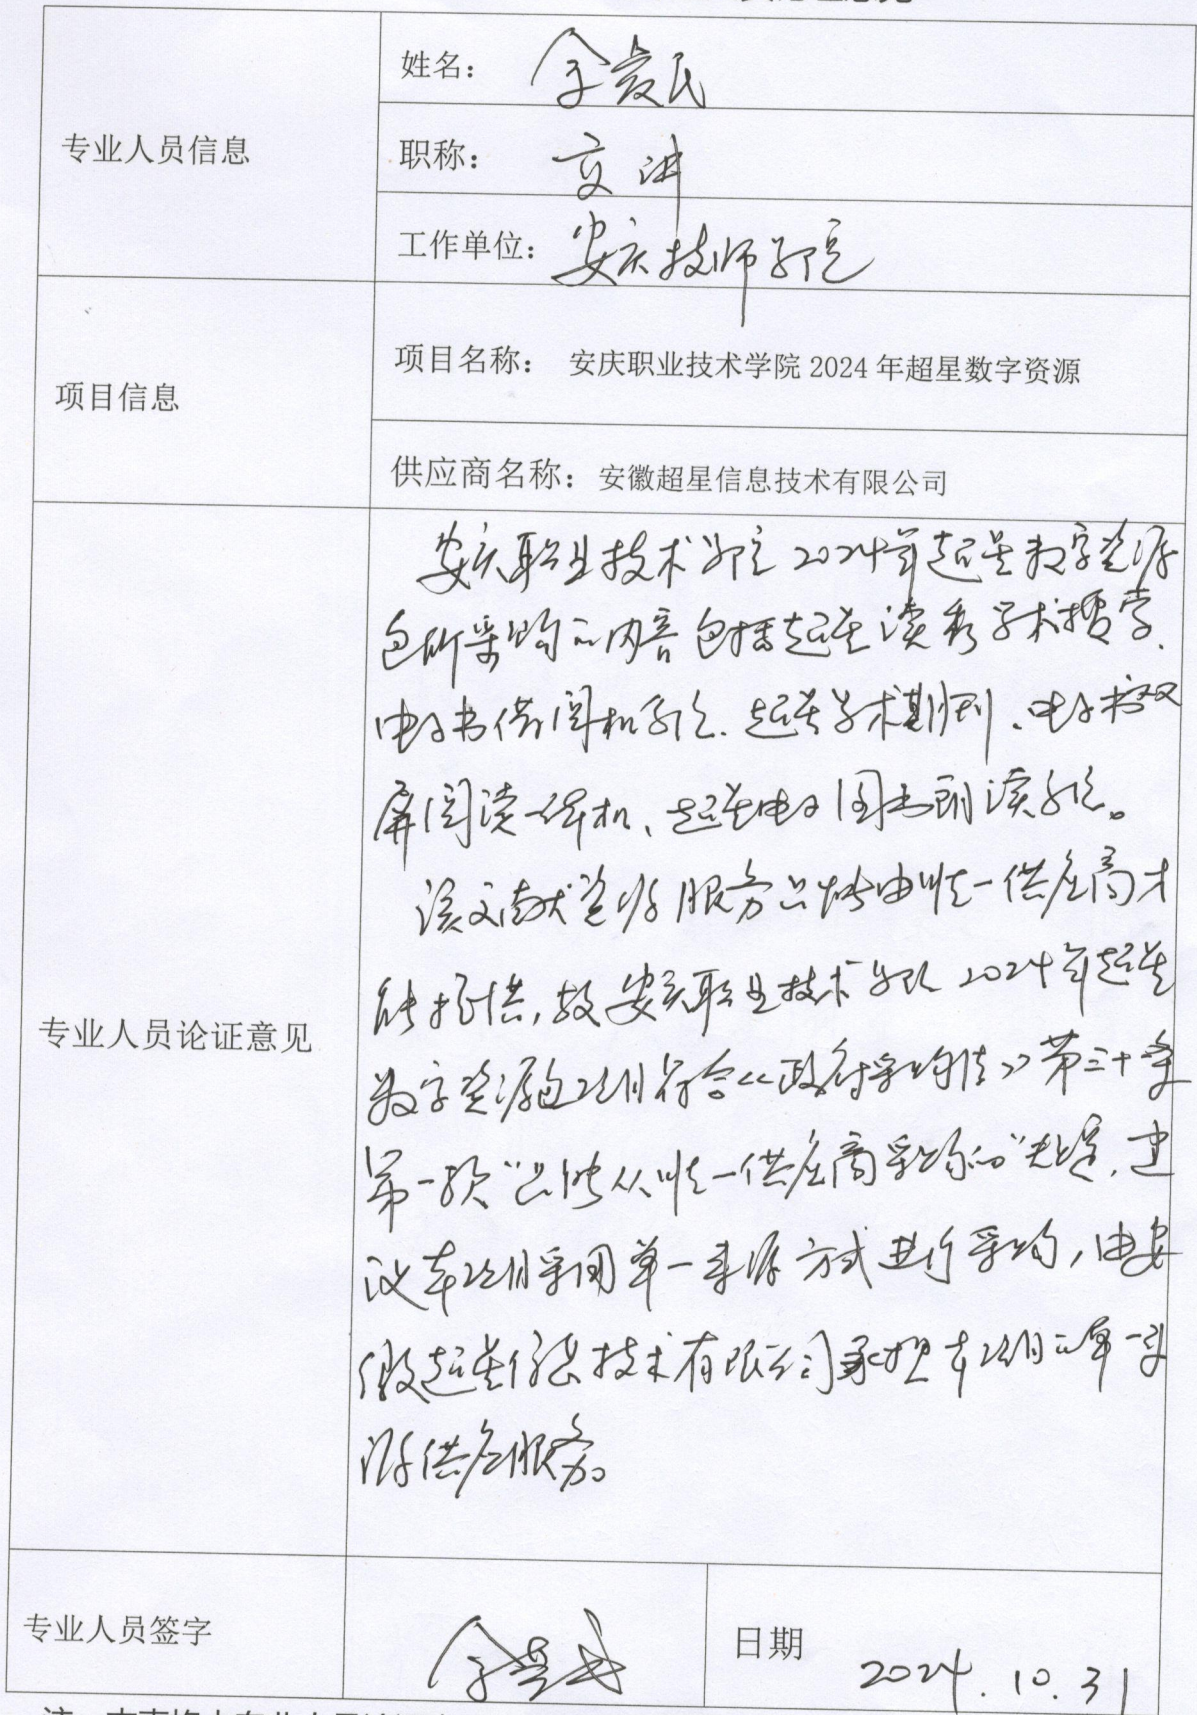 专业人员信息
姓名：
职称：
工作单位：安庆技师学院
项目信息
项目名称： 安庆职业技术学院 2024 年超星数字资源
供应商名称：安徽超星信息技术有限公司
专业人员论证意见
安庆职业技术学院2024年超星数字资源
包所采购的内容包括超星读秀学术搜索、
电子书借阅机系统、超星学术期刊、电子书双
屏阅读一体机、超星电子图书朗读系统。
该文献资源服务只能由唯一供应商才
能提供，故安庆职业技术学院2024年超星
数字资源包项目符合《政府采购法》第三十一条
第一款“只能从唯一供应商采购的”规定，建
议本项目采用单一来源方式进行采购，由安
徽超星信息技术有限公司承担本项目的单一来
源供应服务。
专业人员签字
日期
2024.10.31